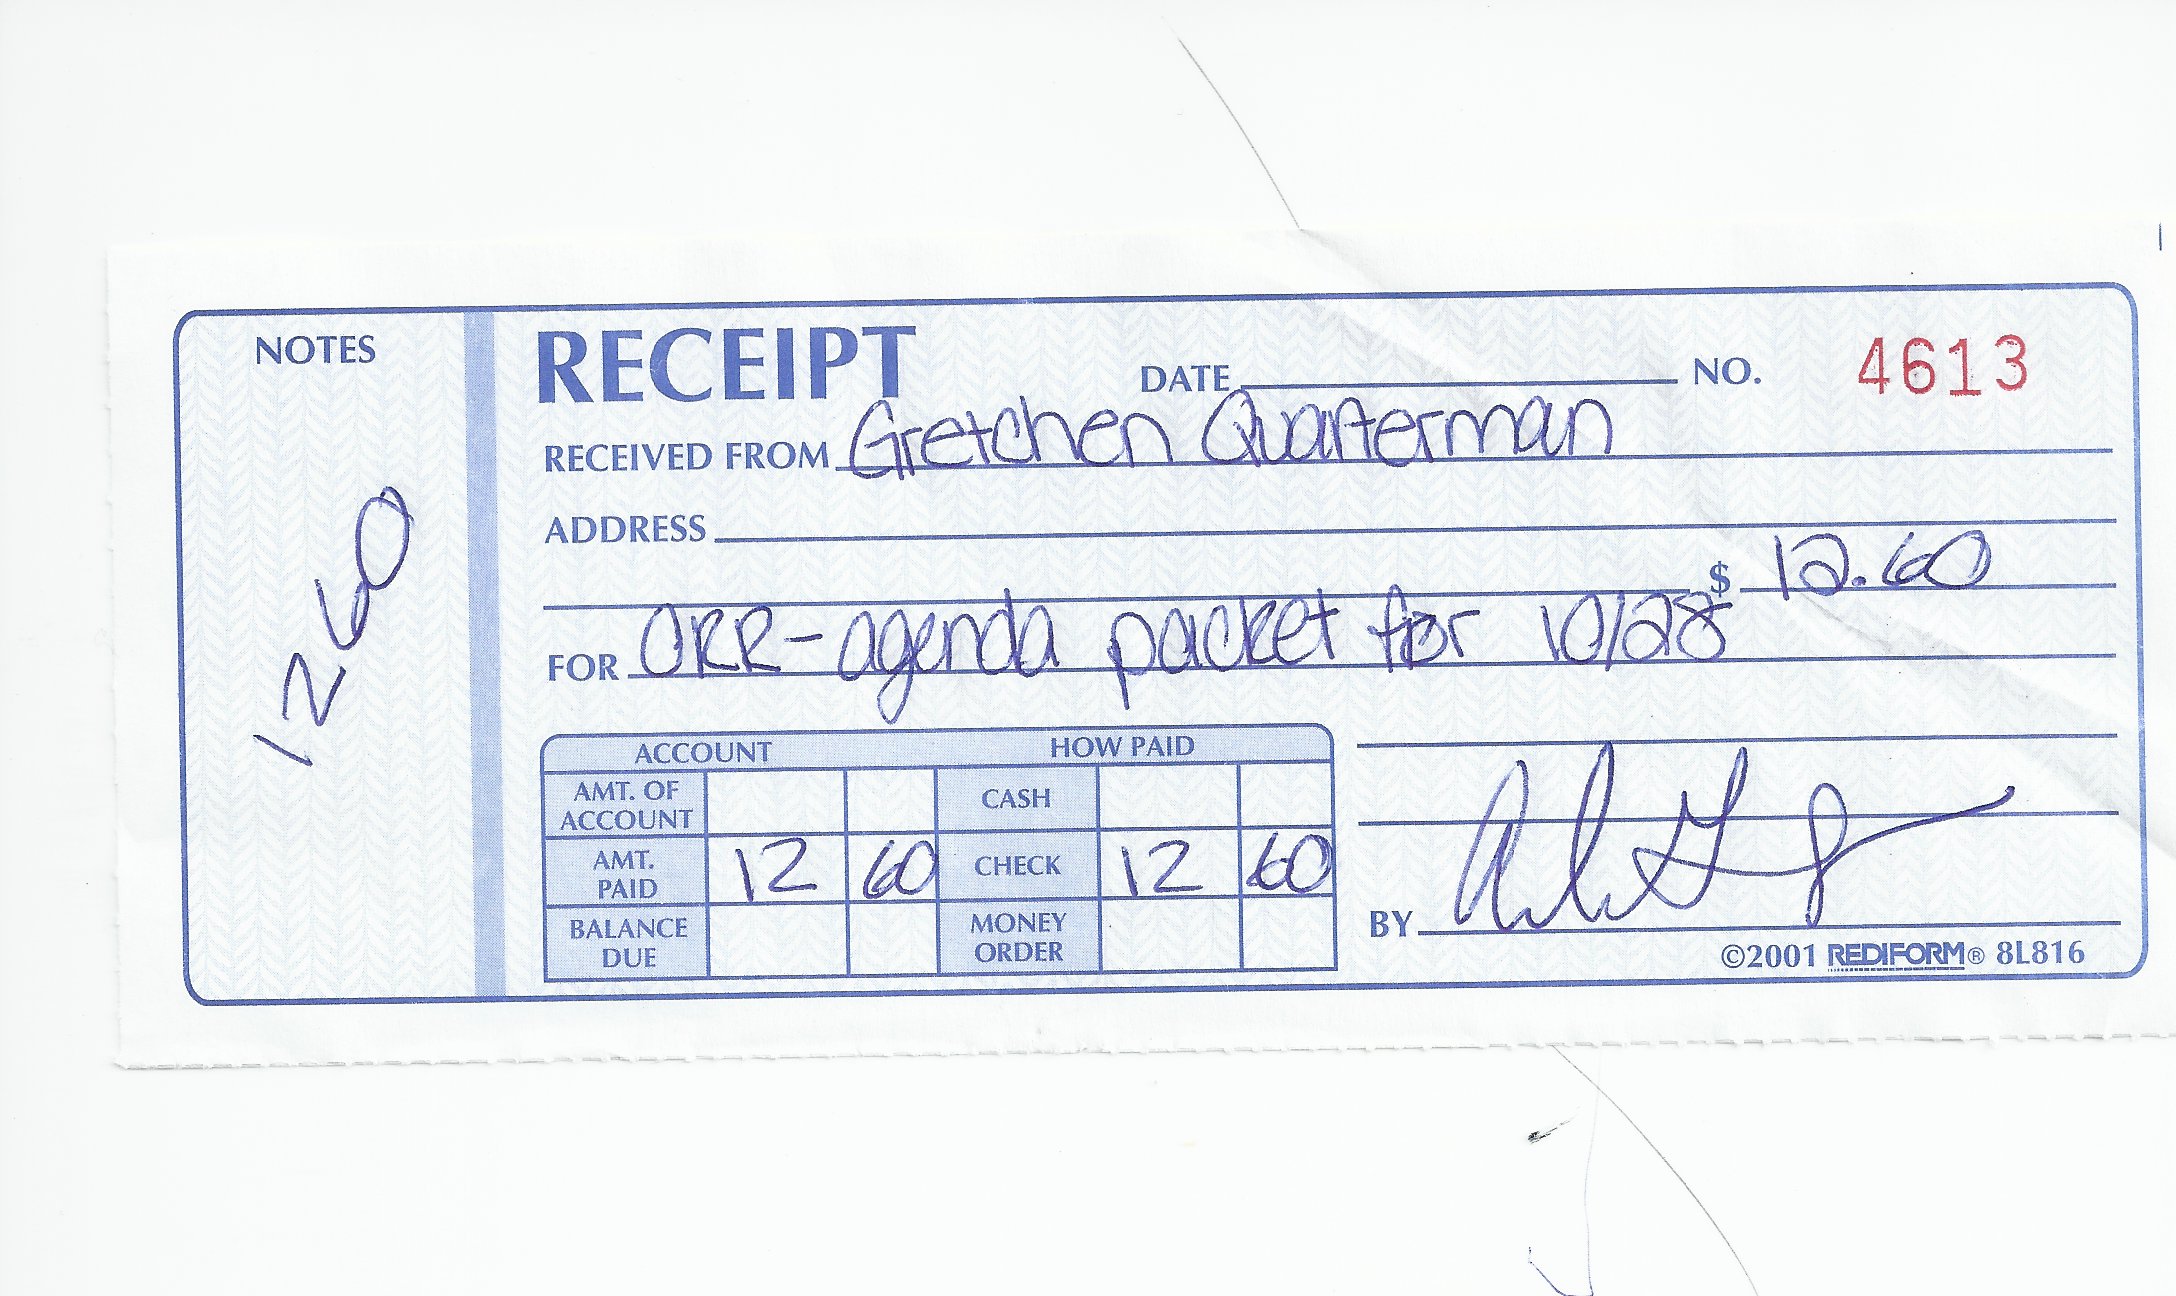 NOTES
12 60
RECEIPT DATE NO. 4613
RECEIVED FROM Gretchen Quarterman
ADDRESS
$ 12.60
FOR ORR - agenda packet for 10/28
ACCOUNT HOW PAID
AMT. OF ACCOUNT CASH
AMT. PAID 12 60 CHECK 12 60
BALANCE DUE MONEY ORDER
BY
©2001 REDIFORM® 8L816